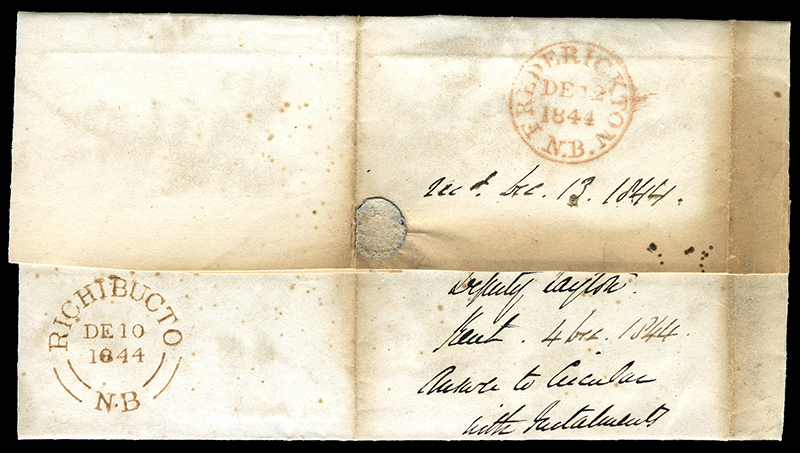 FREDERICKTON
DE 12
1844
N.B.
recd. Dec. 13. 1844.
Deputy Taylor.
Kent. 4 Dec. 1844.
Answer to Circular
with Instalments
RICHIBUCTO
DE 10
1844
N.B